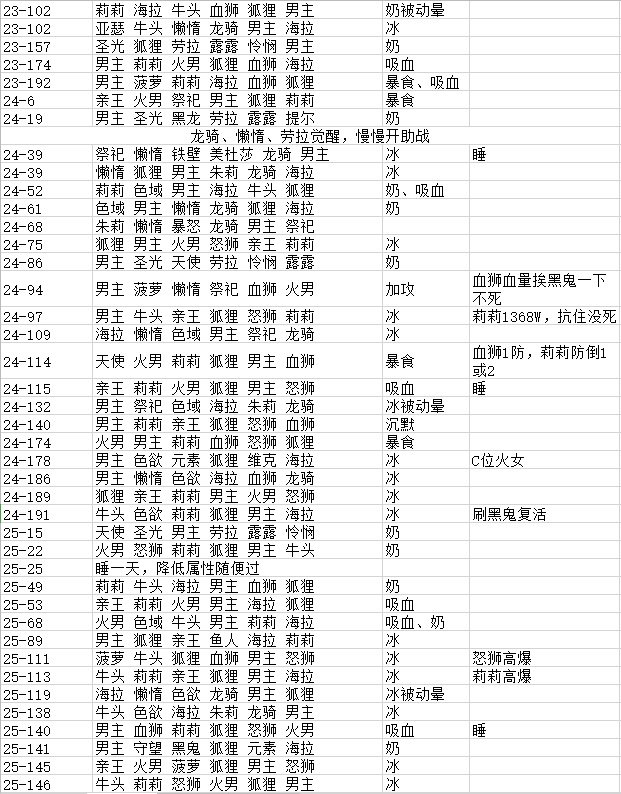 23-102 莉莉 海拉 牛头 血狮 狐狸 男主 奶被动晕
23-102 亚瑟 牛头 懒惰 龙骑 男主 海拉 冰
23-157 圣光 狐狸 劳拉 露露 怜悯 男主 奶
23-174 男主 莉莉 火男 狐狸 血狮 海拉 吸血
23-192 男主 菠萝 莉莉 海拉 血狮 狐狸 暴食、吸血
24-6 亲王 火男 祭祀 男主 狐狸 莉莉 暴食
24-19 男主 圣光 黑龙 劳拉 露露 提尔 奶
龙骑、懒惰、劳拉觉醒，慢慢开助战
24-39 祭祀 懒惰 铁壁 美杜莎 龙骑 男主 冰 睡
24-39 懒惰 狐狸 男主 朱莉 龙骑 海拉 冰
24-52 莉莉 色域 男主 海拉 牛头 狐狸 奶、吸血
24-61 色域 男主 懒惰 龙骑 狐狸 海拉 奶
24-68 朱莉 懒惰 暴怒 龙骑 男主 祭祀
24-75 狐狸 男主 火男 怒狮 亲王 莉莉 冰
24-86 男主 圣光 天使 劳拉 怜悯 露露 奶
24-94 男主 菠萝 懒惰 祭祀 血狮 火男 加攻 血狮血量挨黑鬼一下
不死
24-97 男主 牛头 亲王 狐狸 怒狮 莉莉 冰 莉莉1368W，抗住没死
24-109 海拉 懒惰 色域 男主 祭祀 龙骑 冰
24-114 天使 火男 莉莉 狐狸 男主 血狮 暴食 血狮1防，莉莉防倒1
或2
24-115 亲王 莉莉 火男 狐狸 男主 怒狮 吸血 睡
24-132 男主 祭祀 色域 海拉 朱莉 龙骑 冰被动晕
24-140 男主 莉莉 亲王 狐狸 怒狮 血狮 沉默
24-174 火男 男主 莉莉 血狮 怒狮 狐狸 暴食
24-178 男主 色欲 元素 狐狸 维克 海拉 冰 C位火女
24-186 男主 懒惰 色欲 海拉 血狮 龙骑 冰
24-189 狐狸 亲王 莉莉 男主 火男 怒狮 冰
24-191 牛头 色欲 莉莉 狐狸 男主 海拉 冰 刷黑鬼复活
25-15 天使 圣光 男主 劳拉 露露 怜悯 奶
25-22 火男 怒狮 莉莉 狐狸 男主 牛头 奶
25-25 睡一天，降低属性随便过
25-49 莉莉 牛头 海拉 男主 血狮 狐狸 奶
25-53 亲王 莉莉 火男 男主 海拉 狐狸 吸血
25-68 火男 色域 牛头 男主 莉莉 海拉 吸血、奶
25-89 男主 狐狸 亲王 鱼人 海拉 莉莉 冰
25-111 菠萝 牛头 狐狸 血狮 男主 怒狮 冰 怒狮高爆
25-113 牛头 莉莉 亲王 狐狸 男主 海拉 冰 莉莉高爆
25-119 海拉 懒惰 色欲 龙骑 男主 狐狸 冰被动晕
25-138 牛头 色欲 海拉 朱莉 龙骑 男主 冰
25-140 男主 血狮 莉莉 狐狸 怒狮 火男 吸血 睡
25-141 男主 守望 黑鬼 狐狸 元素 海拉 奶
25-145 亲王 火男 菠萝 狐狸 男主 怒狮 冰
25-146 牛头 莉莉 怒狮 火男 狐狸 男主 冰